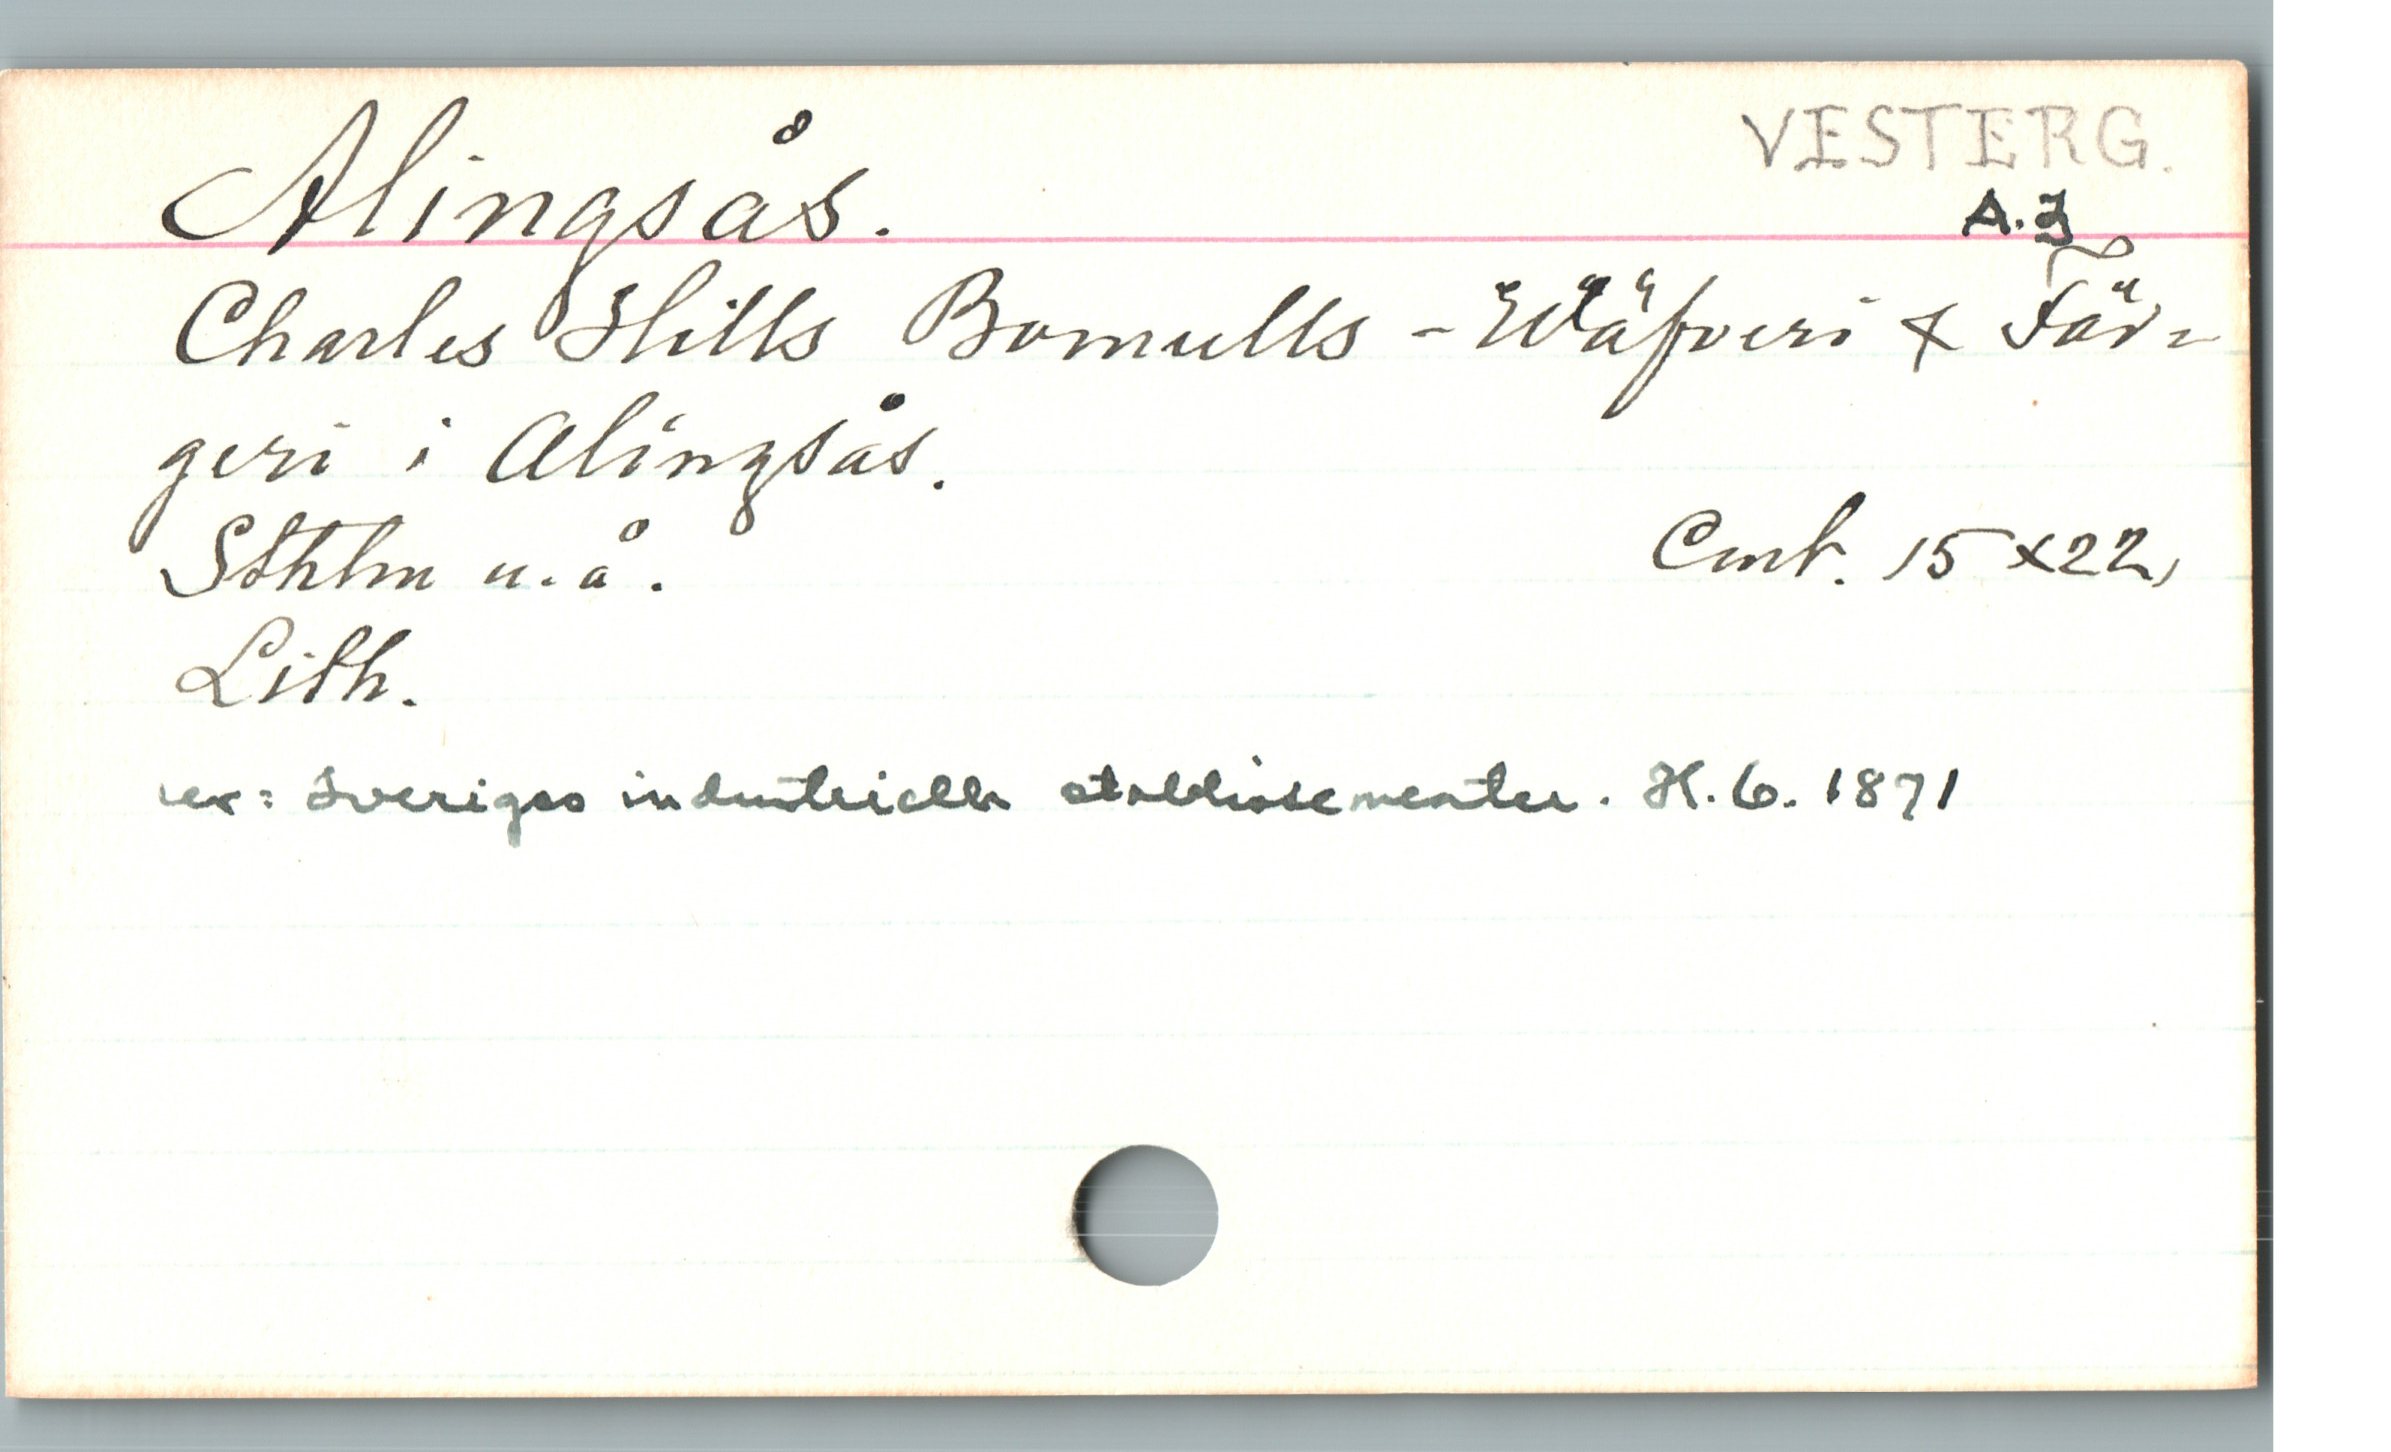 VESTERG.
Alingsås.
A. I
Charles Hills Bomulls - Wäfveri & Fär=
geri i Alingsås.
Sthlm u. å.
Lith.
ex: Sveriges industriella etablissementer. H. 6. 1871